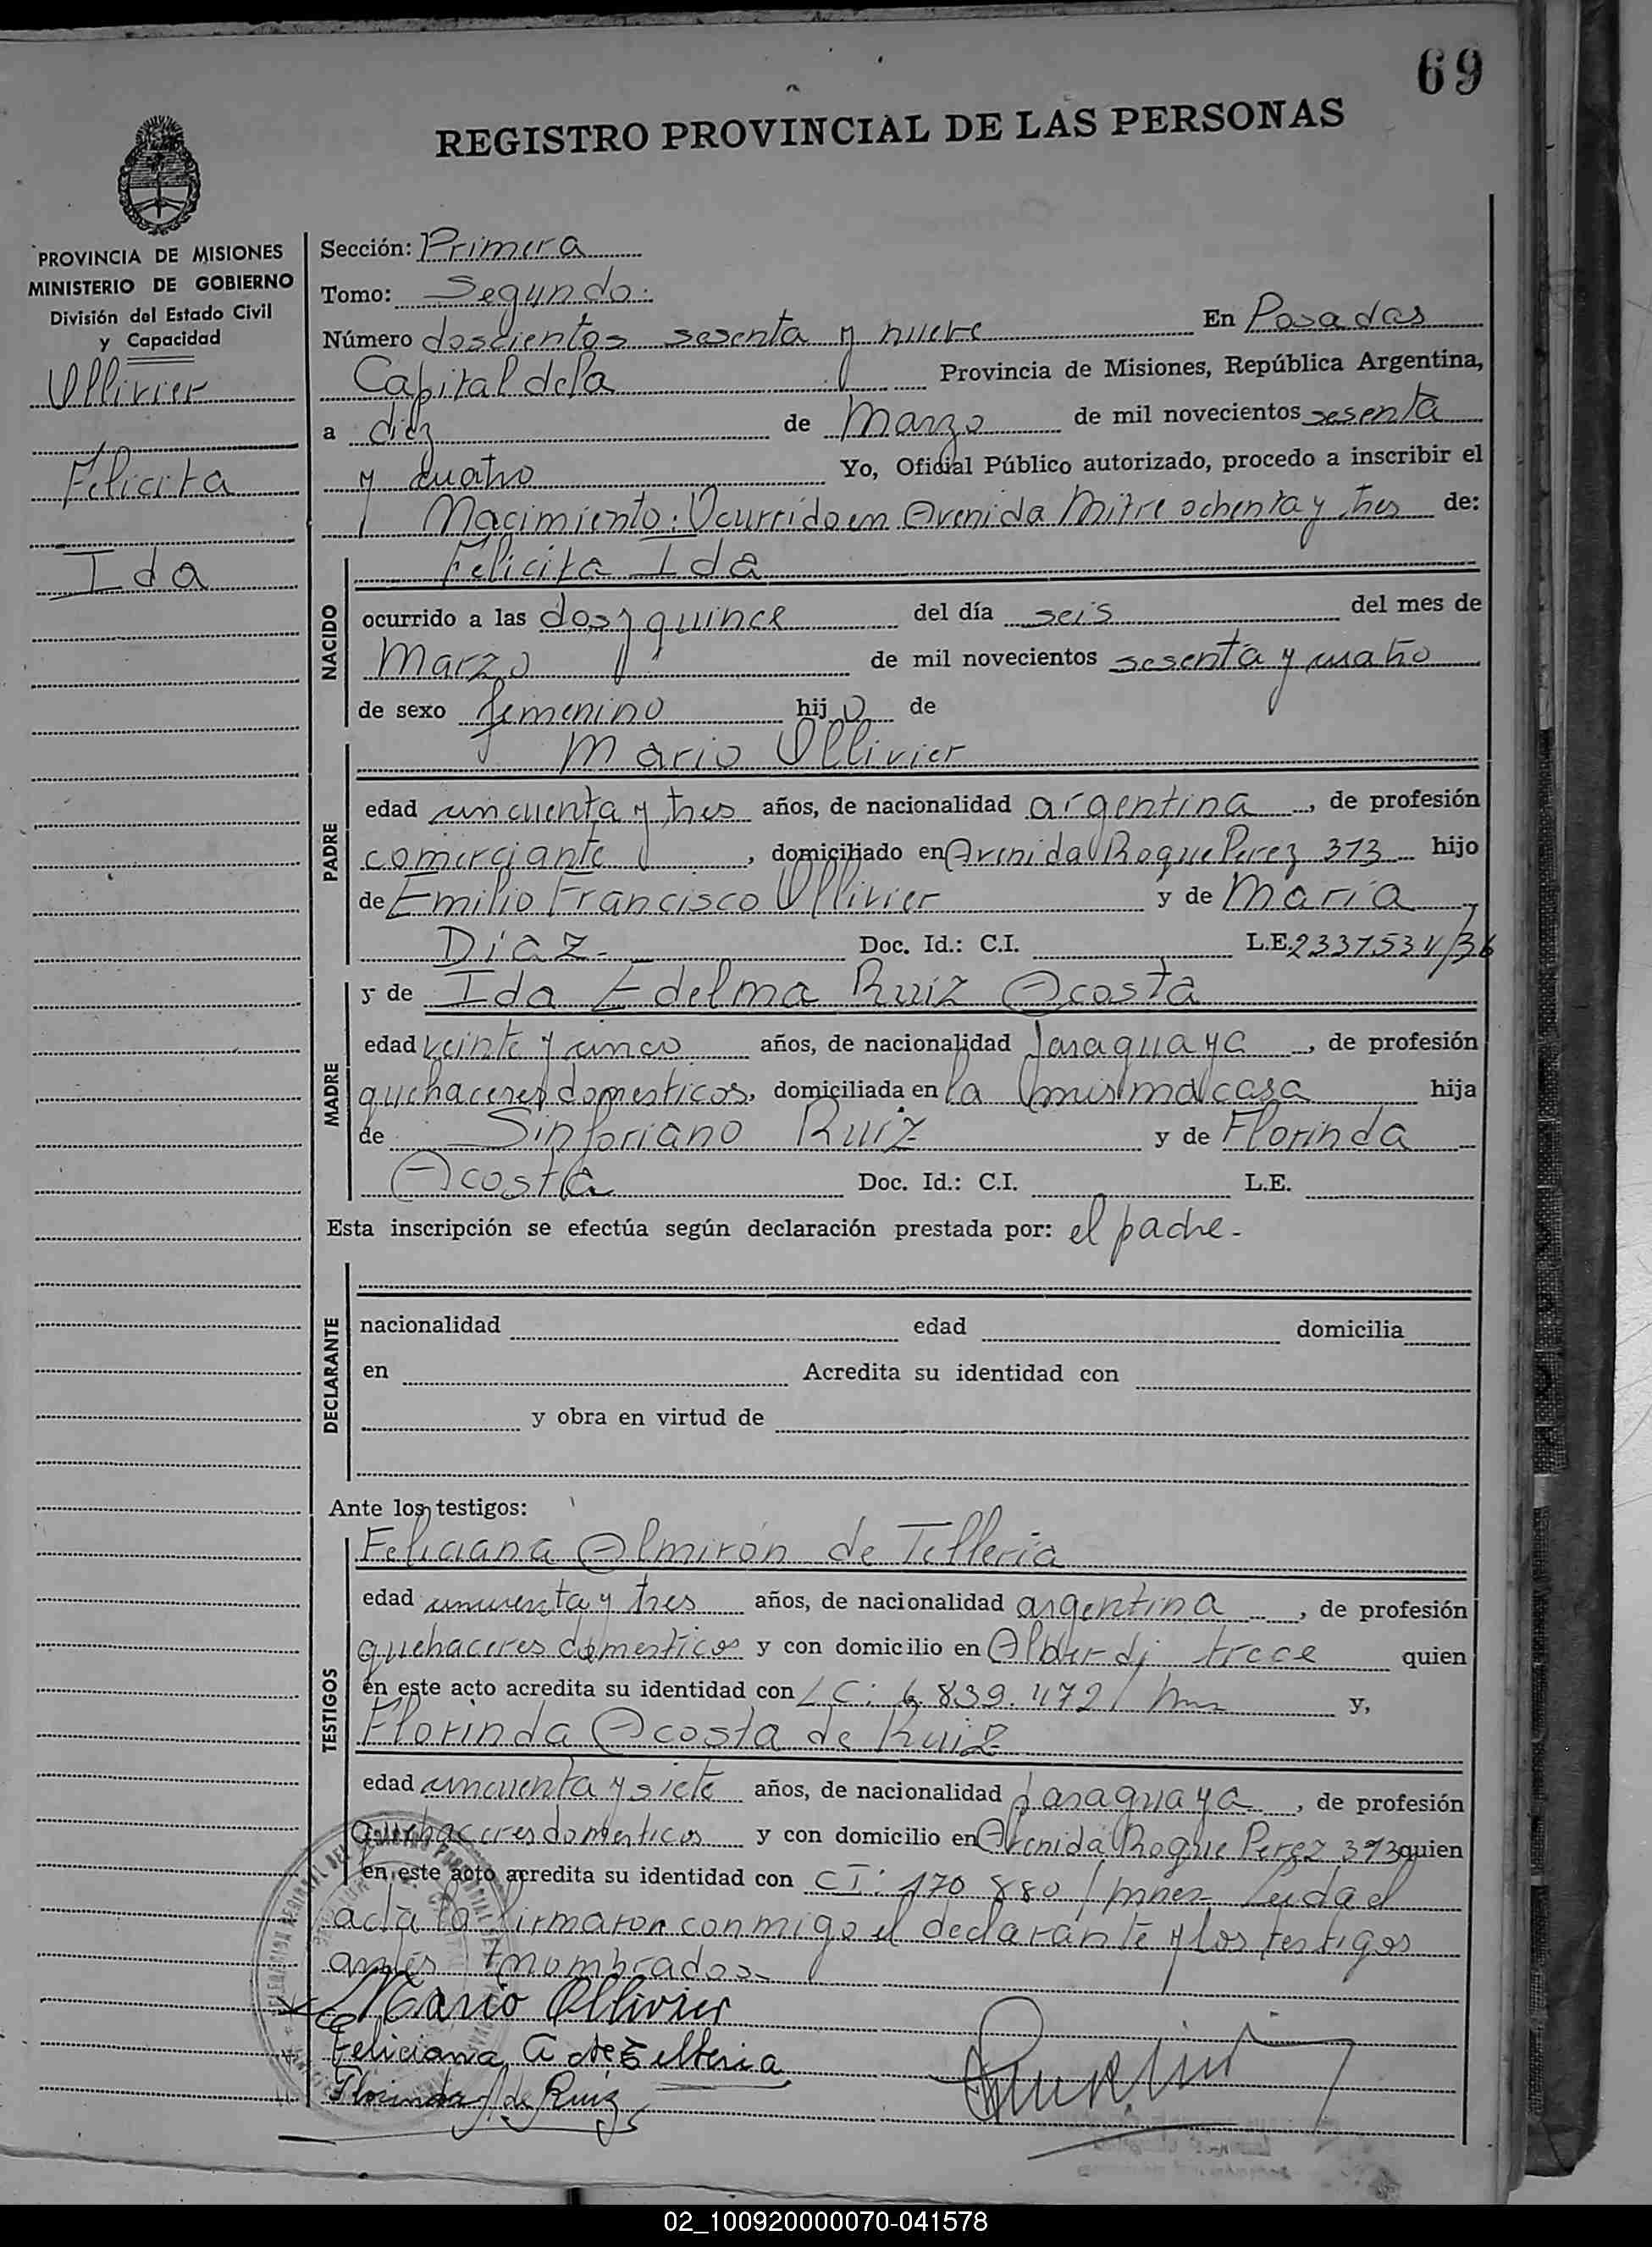 69
REGISTRO PROVINCIAL DE LAS PERSONAS
PROVINCIA DE MISIONES
MINISTERIO DE GOBIERNO
División del Estado Civil
y Capacidad
Ullivier
Felicita
Ida
Sección: Primera
Tomo: Segundo.
Número doscientos sesenta y nueve En Posadas
Capital de la Provincia de Misiones, República Argentina,
a diez de Marzo de mil novecientos sesenta
y cuatro Yo, Oficial Público autorizado, procedo a inscribir el
Nacimiento: Ocurrido en Avenida Mitre ochenta y tres de:
Felicita Ida
NACIDO
ocurrido a las dos y quince del día seis del mes de
Marzo de mil novecientos sesenta y cuatro
de sexo femenino hij o de
Mario Ullivier
PADRE
edad cincuenta y tres años, de nacionalidad argentina, de profesión
comerciante, domiciliado en Avenida Roque Perez 313 hijo
de Emilio Francisco Ullivier y de María
Díaz.- Doc. Id.: C.I. L.E.
y de Ida Edelma Ruiz Acosta
MADRE
edad veinte y cinco años, de nacionalidad paraguaya, de profesión
quehaceres domesticos, domiciliada en la misma casa hija
de Sinforiano Ruiz y de Florinda
Acosta Doc. Id.: C.I. L.E.
Esta inscripción se efectúa según declaración prestada por: el padre.-
DECLARANTE
nacionalidad edad domicilia
en Acredita su identidad con
y obra en virtud de
Ante los testigos:
TESTIGOS
Feliciana Almirón de Tellería
edad cincuenta y tres años, de nacionalidad argentina, de profesión
quehaceres domesticos y con domicilio en Alberdi trece quien
en este acto acredita su identidad con LC: 6.839.472/ y,
Florinda Acosta de Ruiz
edad cincuenta y siete años, de nacionalidad paraguaya, de profesión
quehaceres domesticos y con domicilio en Avenida Roque Perez 313 quien
en este acto acredita su identidad con CI: 170 880 / mnes- Leida el
acta la firmaron conmigo el declarante y los testigos
antes nombrados-
Mario Ullivier
Feliciana A de Telleria
Florinda A de Ruiz
02_100920000070-041578